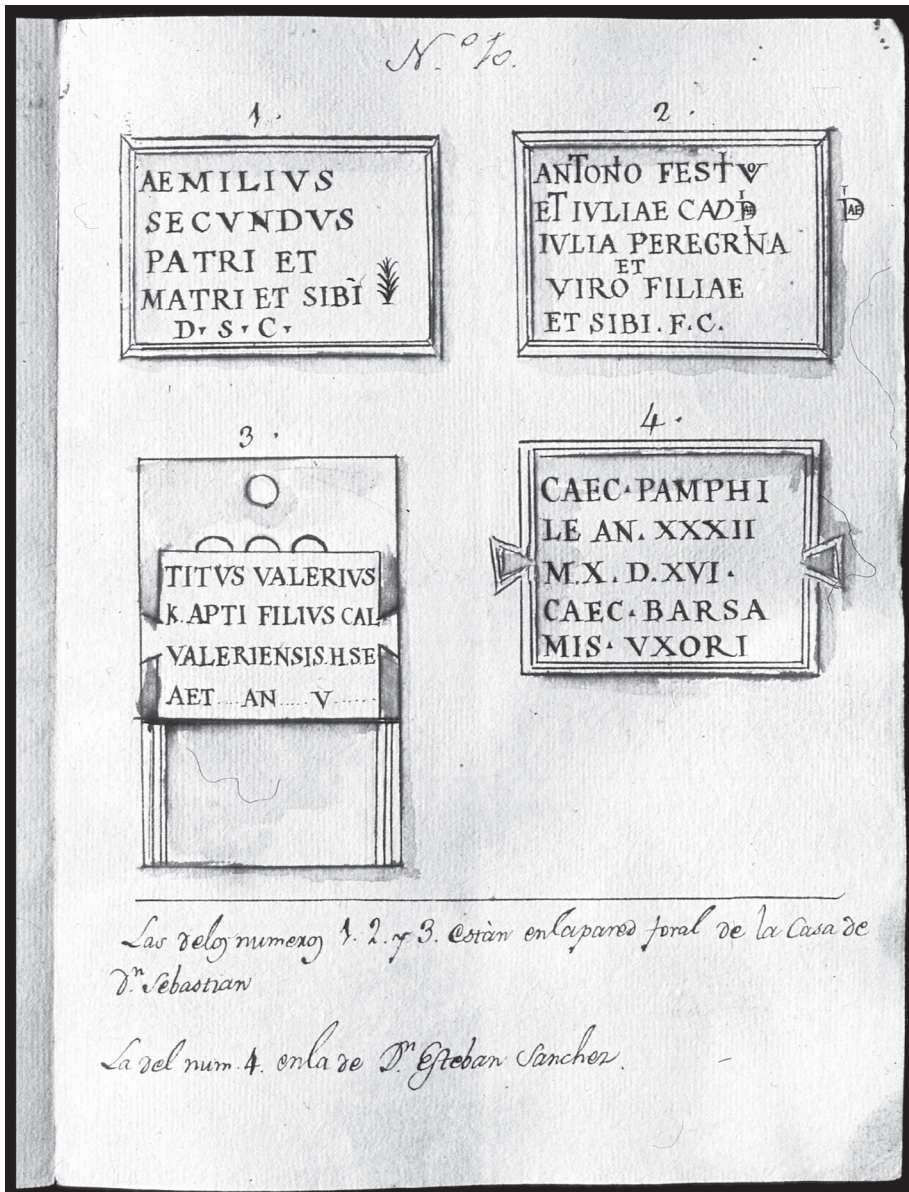 N.º 10.
1.
AEMILIVS
SECVNDVS
PATRI ET
MATRI ET SIBI
D. S. C.
2.
ANTONO FESTVO
ET IVLIAE
IVLIA PEREGRINA
ET
VIRO FILIAE
ET SIBI. F. C.
3.
TITVS VALERIVS
K. APTI FILIVS CAL
VALERIENSIS. H. S. E
AET .... AN .... V ......
4.
CAEC. PAMPHI
LE AN. XXXII
M. X. D. XVI.
CAEC. BARSA
MIS. VXORI
Las delos numeros 1. 2. y 3. estàn enlapared foral de la Casa de
Dn. Sebastian
La del num. 4. enla de Dn. Esteban Sanchez.